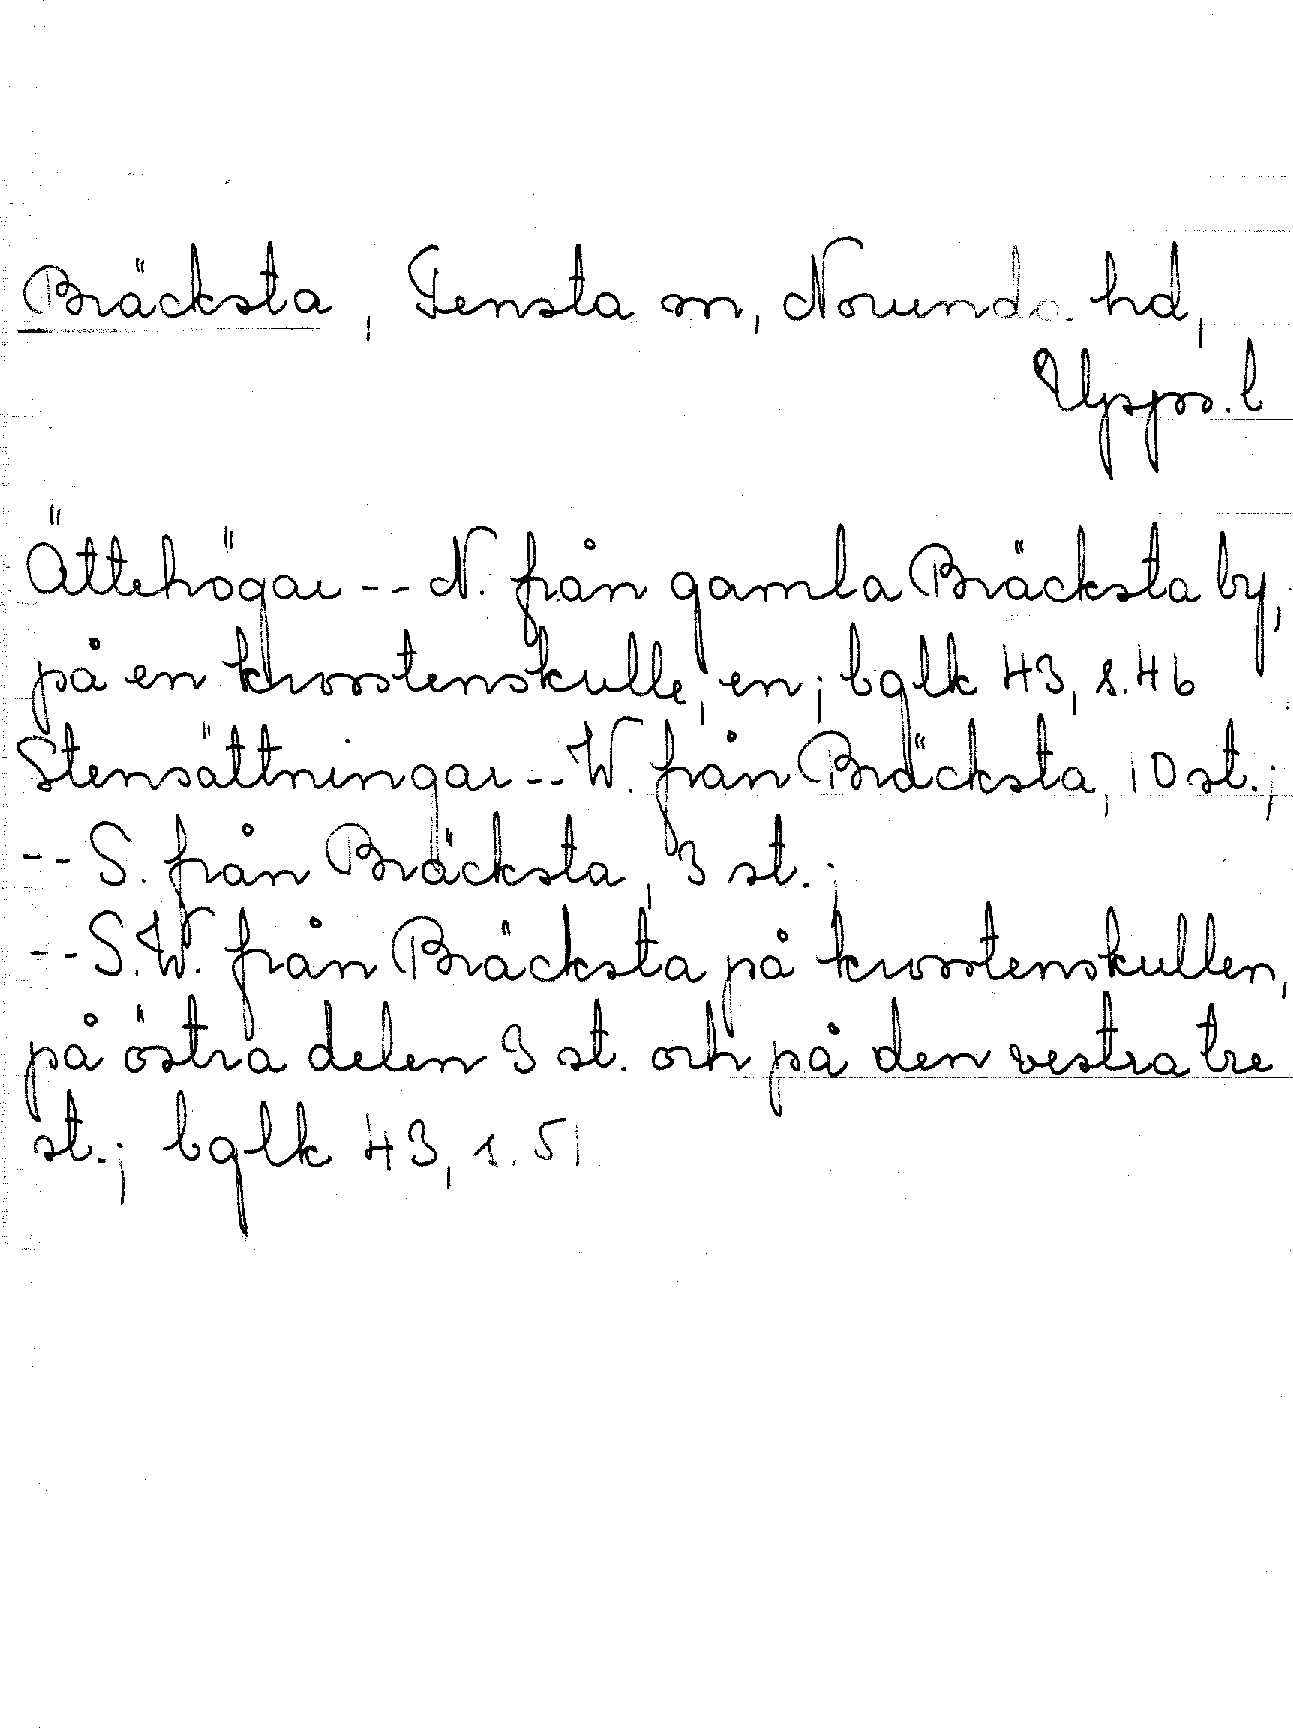 Bräcksta, Tensta sn, Norunda hd,
Upps. l
Ättehögar -- N. från gamla Bräcksta by,
på en krosstenskulle, en; bglk 43, s. 46
Stensättningar -- W. från Bräcksta, 10 st.;
-- S. från Bräcksta, 3 st.;
-- S.W. från Bräcksta på krosstenskullen,
på östra delen 3 st. och på den vestra tre
st.; bglk 43, s. 51